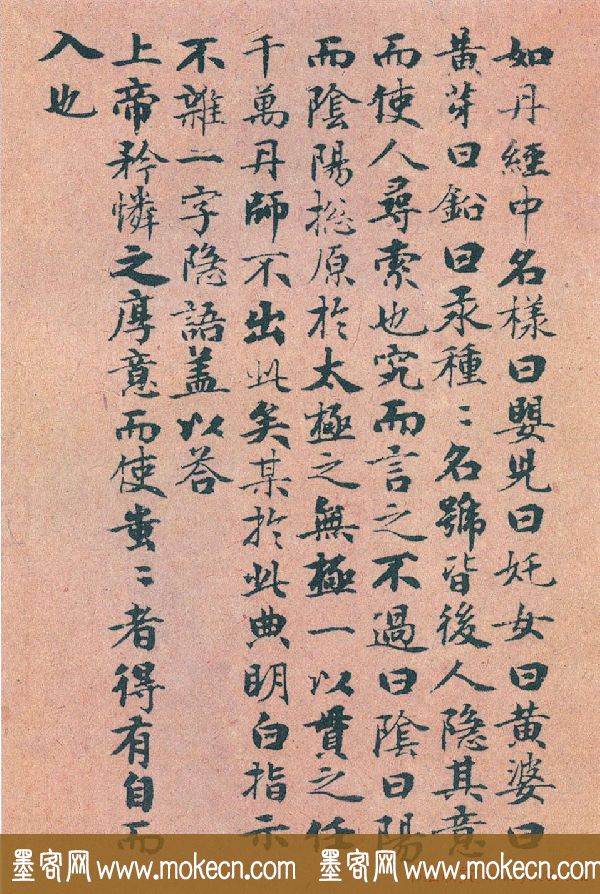 如丹經中名樣曰嬰児曰奼女曰黄婆曰
黄芽曰鉛曰汞種〻名號皆後人隠其意
而使人尋索也究而言之不過曰陰曰陽
而陰陽捴原於太極之無極一以貫之任
千萬丹師不出此矣某於此典明白指示
不雜一字隠語盖以荅
上帝矜憐之厚意而使蚩〻者得有自而
入也
墨客网 www.mokecn.com 墨客网 www.mokecn.com